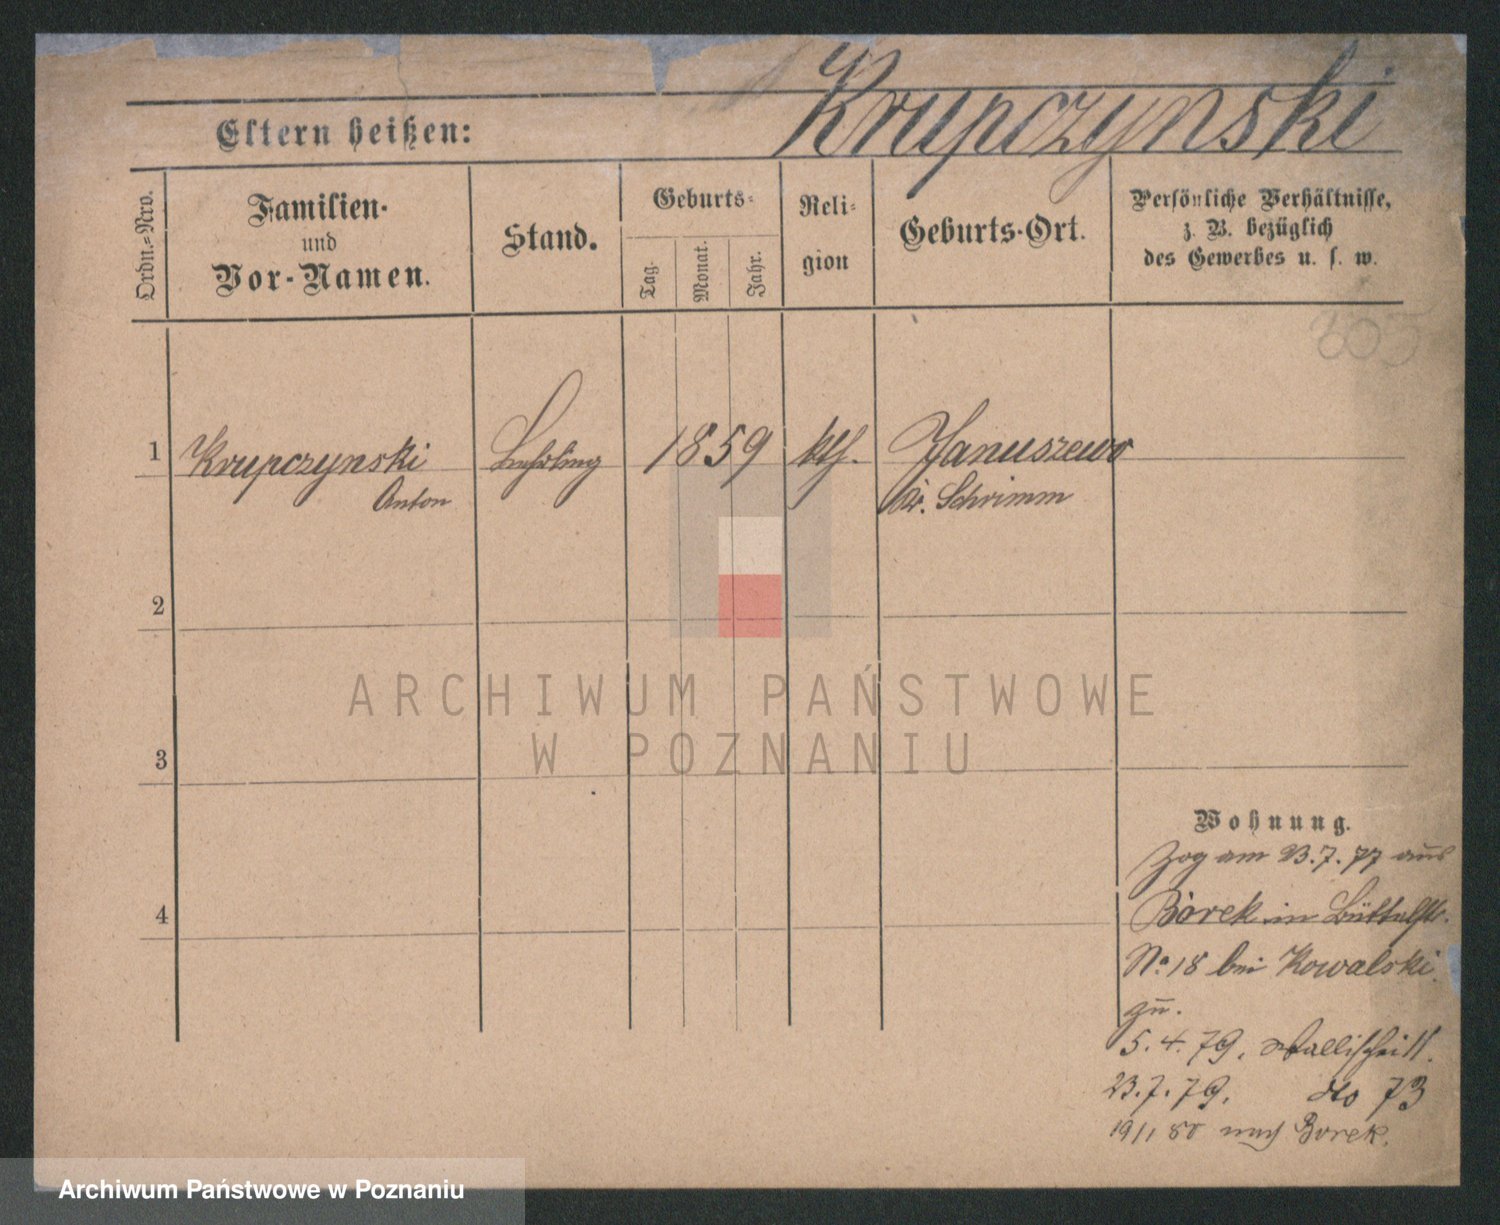 Krupczynski
Eltern heißen:
Ordn.-Nro.
Familien-
und
Vor-Namen.
Stand.
Geburts-
Tag.
Monat.
Jahr.
Reli-
gion
Geburts-Ort.
Persönliche Verhältnisse,
z. B. bezüglich
des Gewerbes u. s. w.
305
1 Krupczynski Lehrling 1859 kth. Januszewo
Anton Kr. Schrimm
2
3
4
ARCHIWUM PAŃSTWOWE
W POZNANIU
Wohnung.
Zog am 23.7.77 aus
Borek in Büttelstr.
No. 18 bei Kowalski
zu.
5.4.79. Wallischei 11.
23.7.79. do 73
19/1 80 nach Borek.
Archiwum Państwowe w Poznaniu